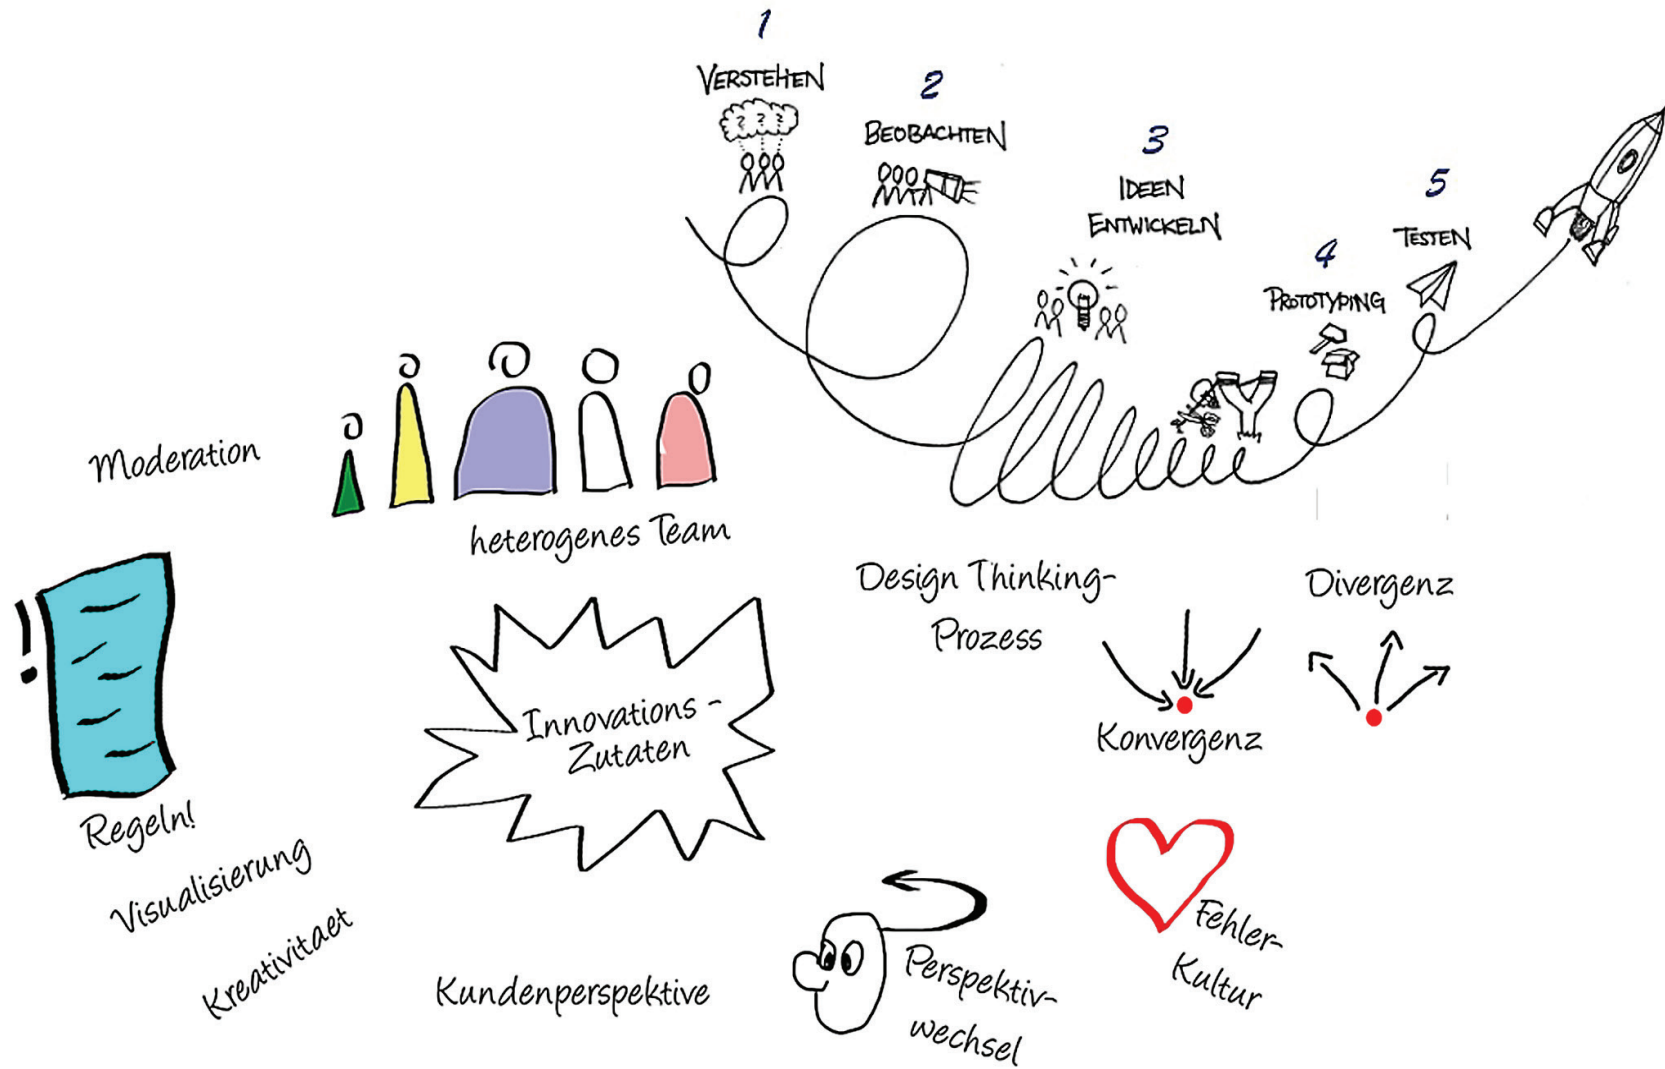 1
VERSTEHEN
2
BEOBACHTEN
3
IDEEN
ENTWICKELN
4
PROTOTYPING
5
TESTEN
Moderation
heterogenes Team
Design Thinking-
Prozess
Divergenz
Konvergenz
Innovations-
Zutaten
!
Regeln!
Visualisierung
Kreativitaet
Kundenperspektive
Perspektiv-
wechsel
Fehler-
Kultur
? ? ?